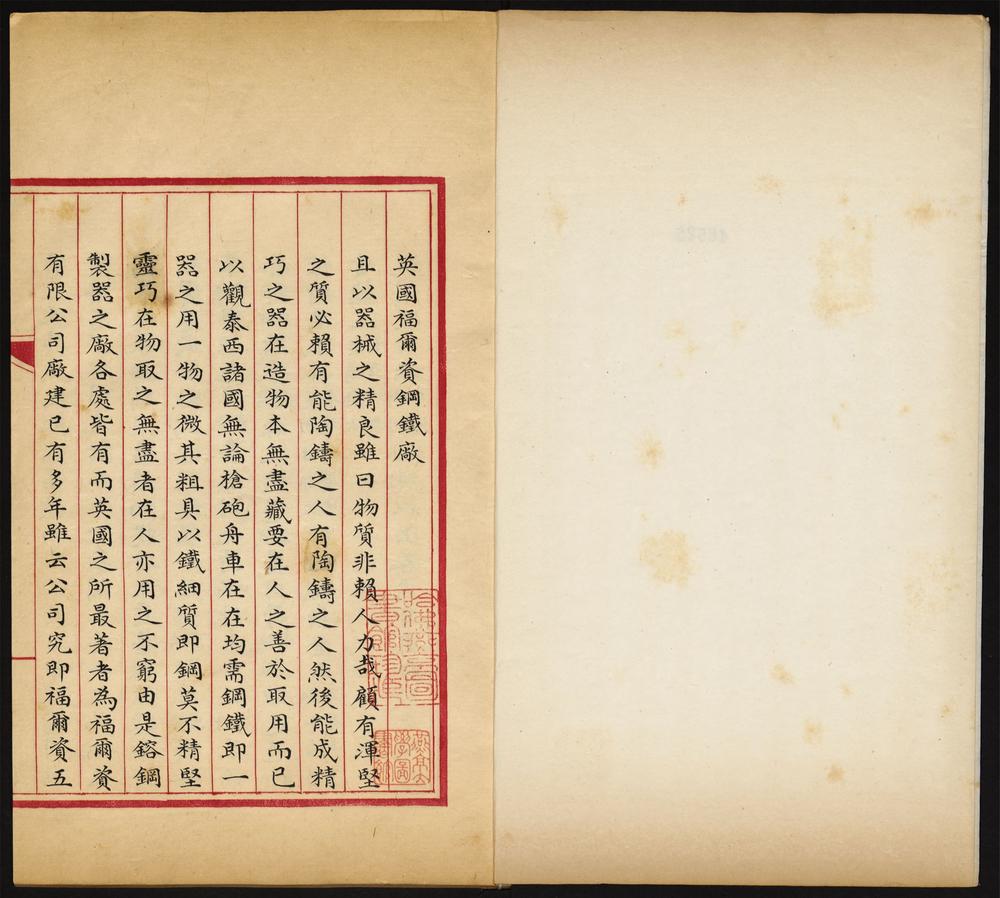 英國福爾資鋼鐵廠
且以器械之精良雖曰物質非賴人力哉顧有渾堅
之質必賴有能陶鑄之人有陶鑄之人然後能成精
巧之器在造物本無盡藏要在人之善於取用而已
以觀泰西諸國無論槍砲舟車在在均需鋼鐵即一
器之用一物之微其粗具以鐵細質即鋼莫不精堅
靈巧在物取之無盡者在人亦用之不窮由是鎔鋼
製器之廠各處皆有而英國之所最著者為福爾資
有限公司廠建已有多年雖云公司究即福爾資五